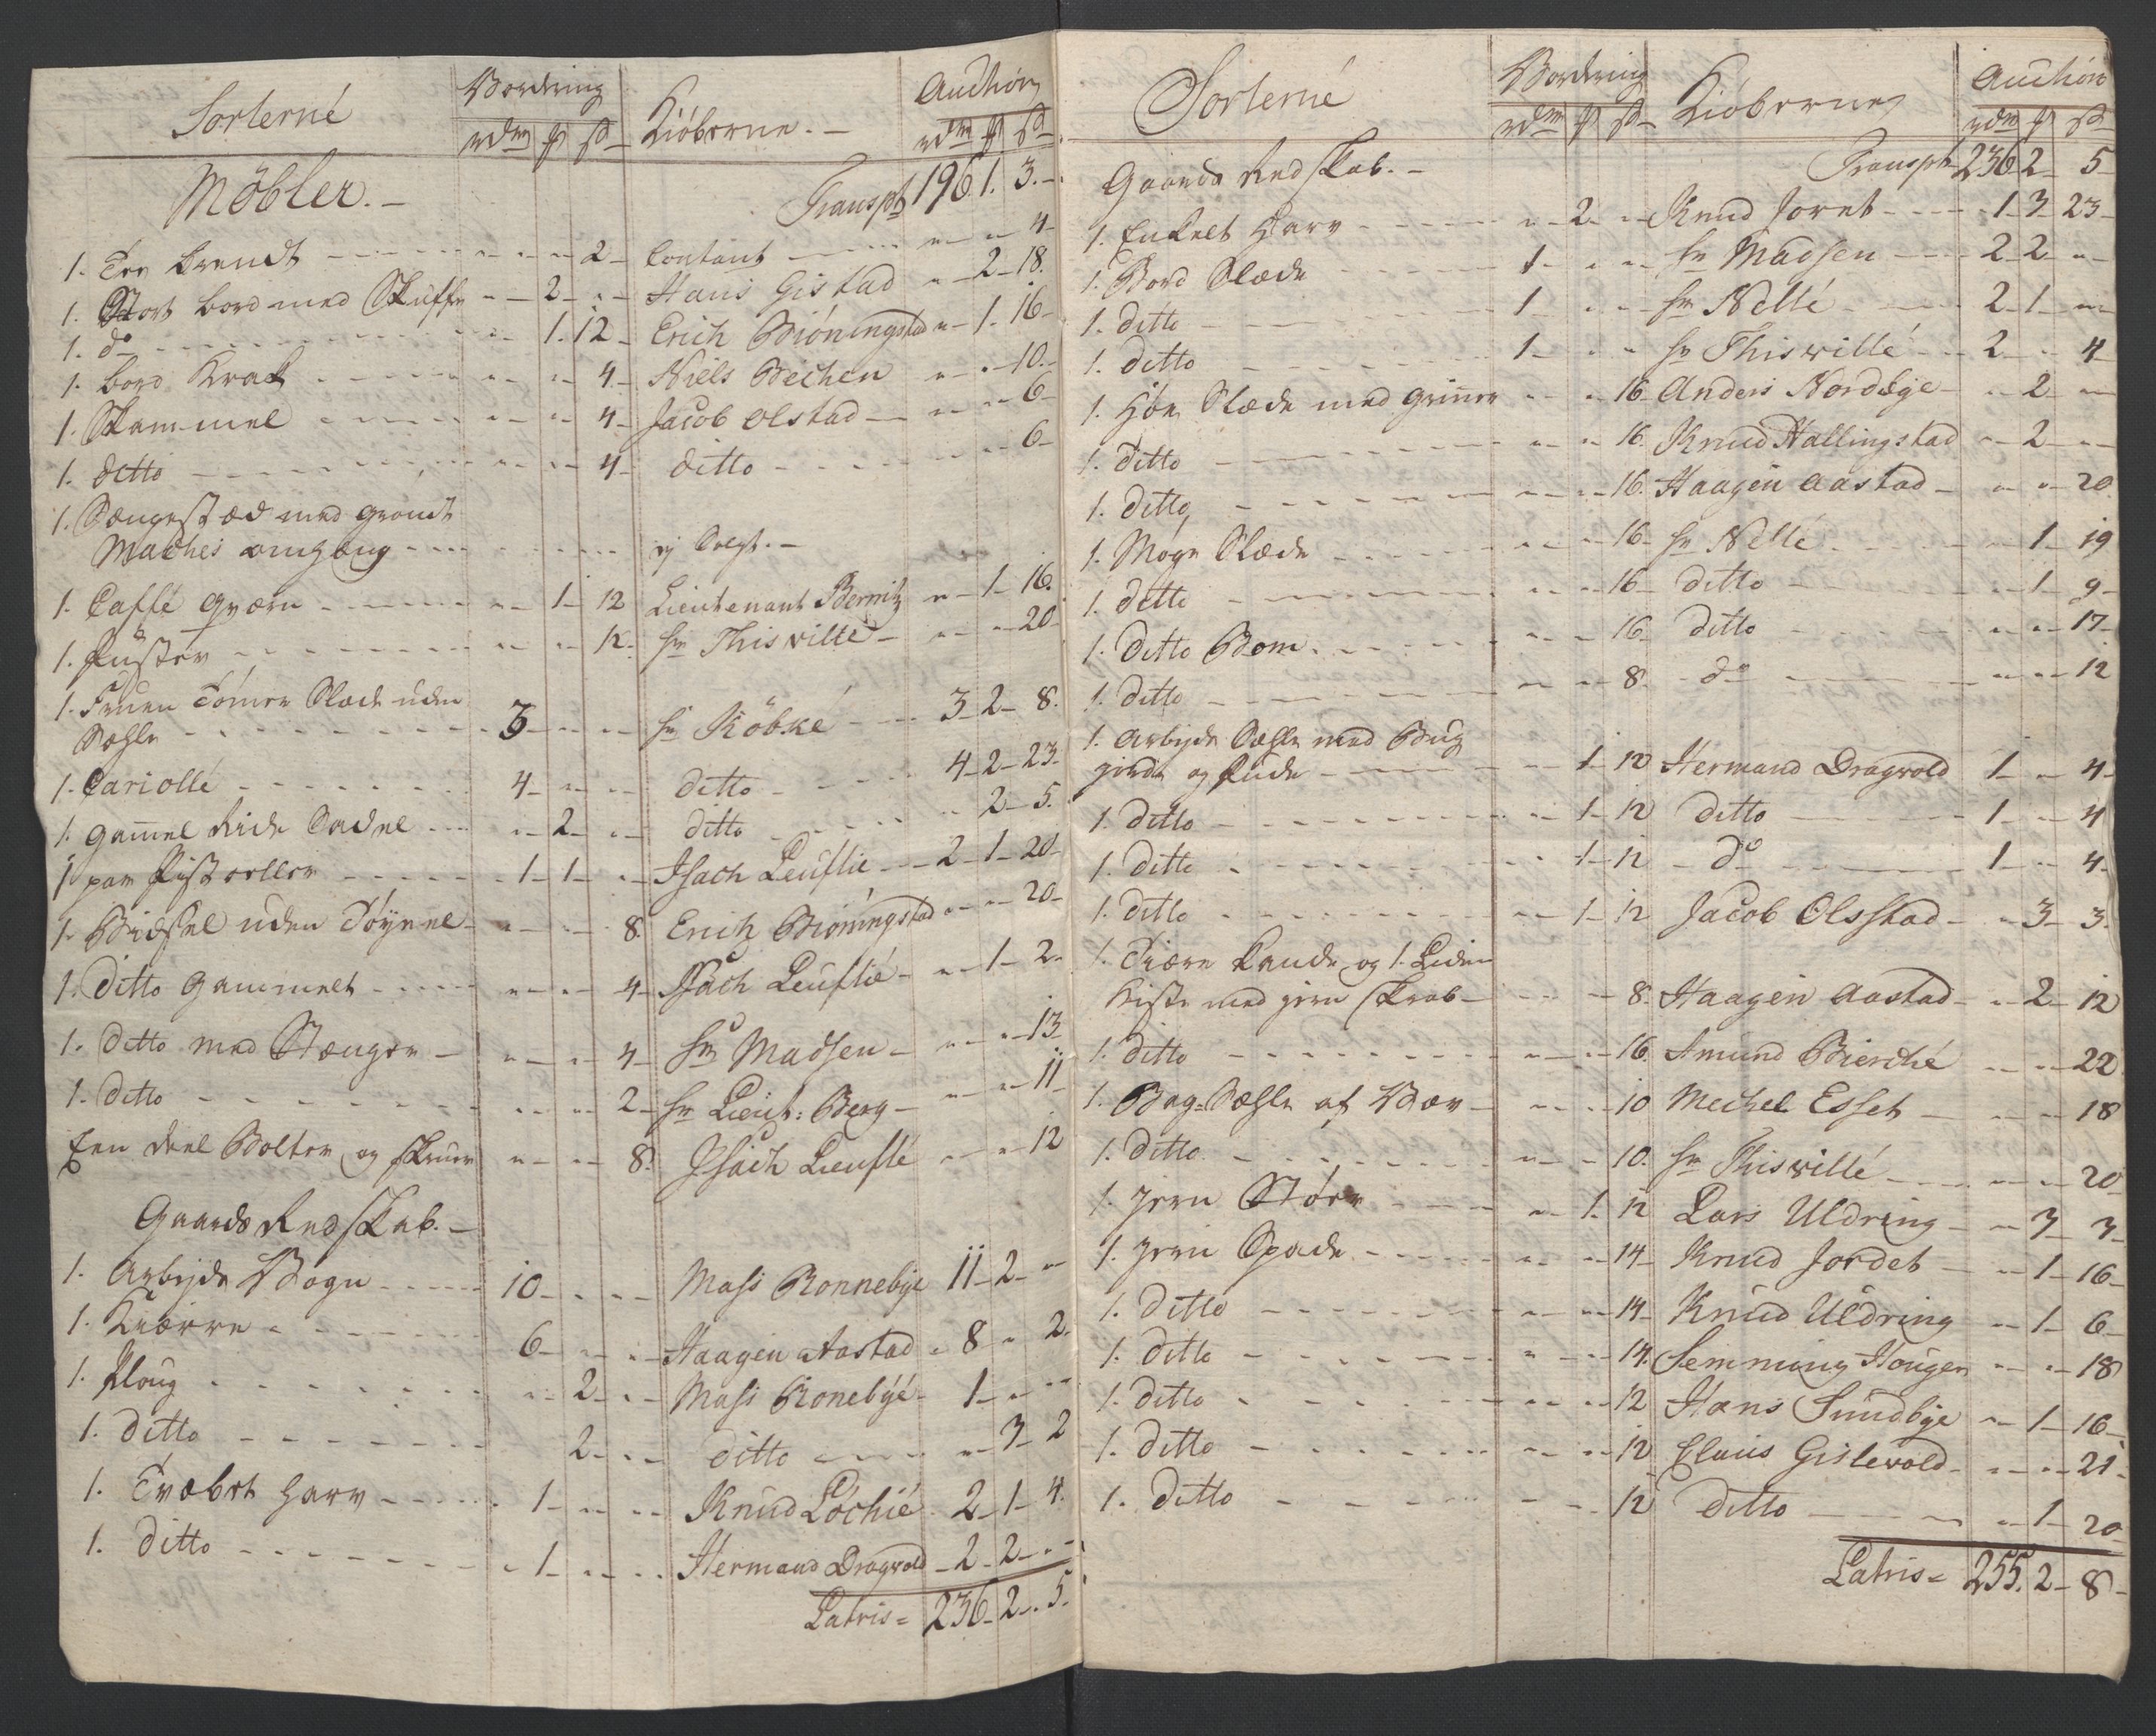 Sorterne Vordring Kiöberne. – Auction
rdr ß rdr ß
Möbler. – Transpt 196. 1. 3. –
1. Træ Brendt 2 Contant 4
1. Stort bord med Skuffe 2 Hans Gistad 2 18.
1. do 1. 12 Erich Biöningstad 1 16
1. bord Krak 4 Niels Beichen 10.
1. Skammel 4 Jacob Olstad 6
1. ditto 4 ditto 6
1. Sængestæd med Grönt
Maches omhæng ej Solgt. –
1. Caffé Qværn 1 12 Lieutenant Bernitz 1 16.
1. Puster 12. Hr Thisville 20
1. Tömer Slæde uden
Sehle 3 Hr Köbke 3 2 8.
1. Cariolle 4 ditto 4 2 23.
1. gamel Ride Sadel 2 ditto 2 5.
1 par Pistoller 1 1 Isach Leuflie 2 1 20
1. Bidsel uden Töynel 8. Erich Biöningstad 20
1. Ditto Gammelt 4 Isach Leuflie 1 2.
1. Ditto med Stænger 4 Hr Madsen 13
1. Ditto 2 Hr Lieut: Berg 11
Een deel Bolter og Skruer 8. Isach Lieuflé 12
Gaards Redskab. –
1. Arbejds Vogn 10 Mass Ronnebye 11 2
1. Kiærre 6 Haagen Aastad 8 2.
1. Ploug 2 Mass Ronebye 1
1. Ditto 2 ditto 3 2
1. Tvæbet Harv 1 Knud Löchie 2 1 4.
1. Ditto 1 Hermand Dragvold 2 2
Latris = 236 2 5.
Sorterne Vordring Kiöberne Auction
rdr ß rdr ß
Gaards Redskab. – Transpt 236 2 5
1. Enkelt Harv 2 Knud Joret 1 3 23
1. Bord Slæde 1 Hr Madsen 2 2
1. ditto 1 Hr Nellé 2 1
1. ditto 1 Hr Thisville 2 4
1. Höe Slæde med Grinner 16 Anders Nordbye 2
1. Ditto 16 Knud Hallingstad 2
1. Ditto 16. Haagen Aastad 20
1. Mögn Slæde 16 Hr Nellé 1 19
1. Ditto 16 ditto 1 9
1. Ditto Bom 16 ditto 17
1. Ditto 8 do 12
1. Arbejds Sehle med Bug
giorde og Pude 1 12 Hermand Dragvold 1 4
1. Ditto 1 12 ditto 1 4
1. Ditto 1 12 do 1 4
1. Ditto 1 12 Jacob Olsstad 3 3.
1. Tiære Kande og 1. Liden
Kiste med Jern Skrab 8. Haagen Aastad 2 12
1. Ditto 16 Amund Bierché 22
1. Bag-Sehle af Vær 10 Mechel Esset 18
1. Ditto 10. Hr Thisvillé 20
1. Jern Stör 1. 12 Lars Uldring 3 3
1. Jern Spade 14 Knud Jordet 1 16
1. Ditto 14 Knud Uldring 1 6
1. Ditto 14. Semming Hougen 18
1. Ditto 12 Hans Sundbye 1 16
1. Ditto 12 Claus Gislevold 21
1. Ditto 12 Ditto 1 20
Latris = 255. 2 8